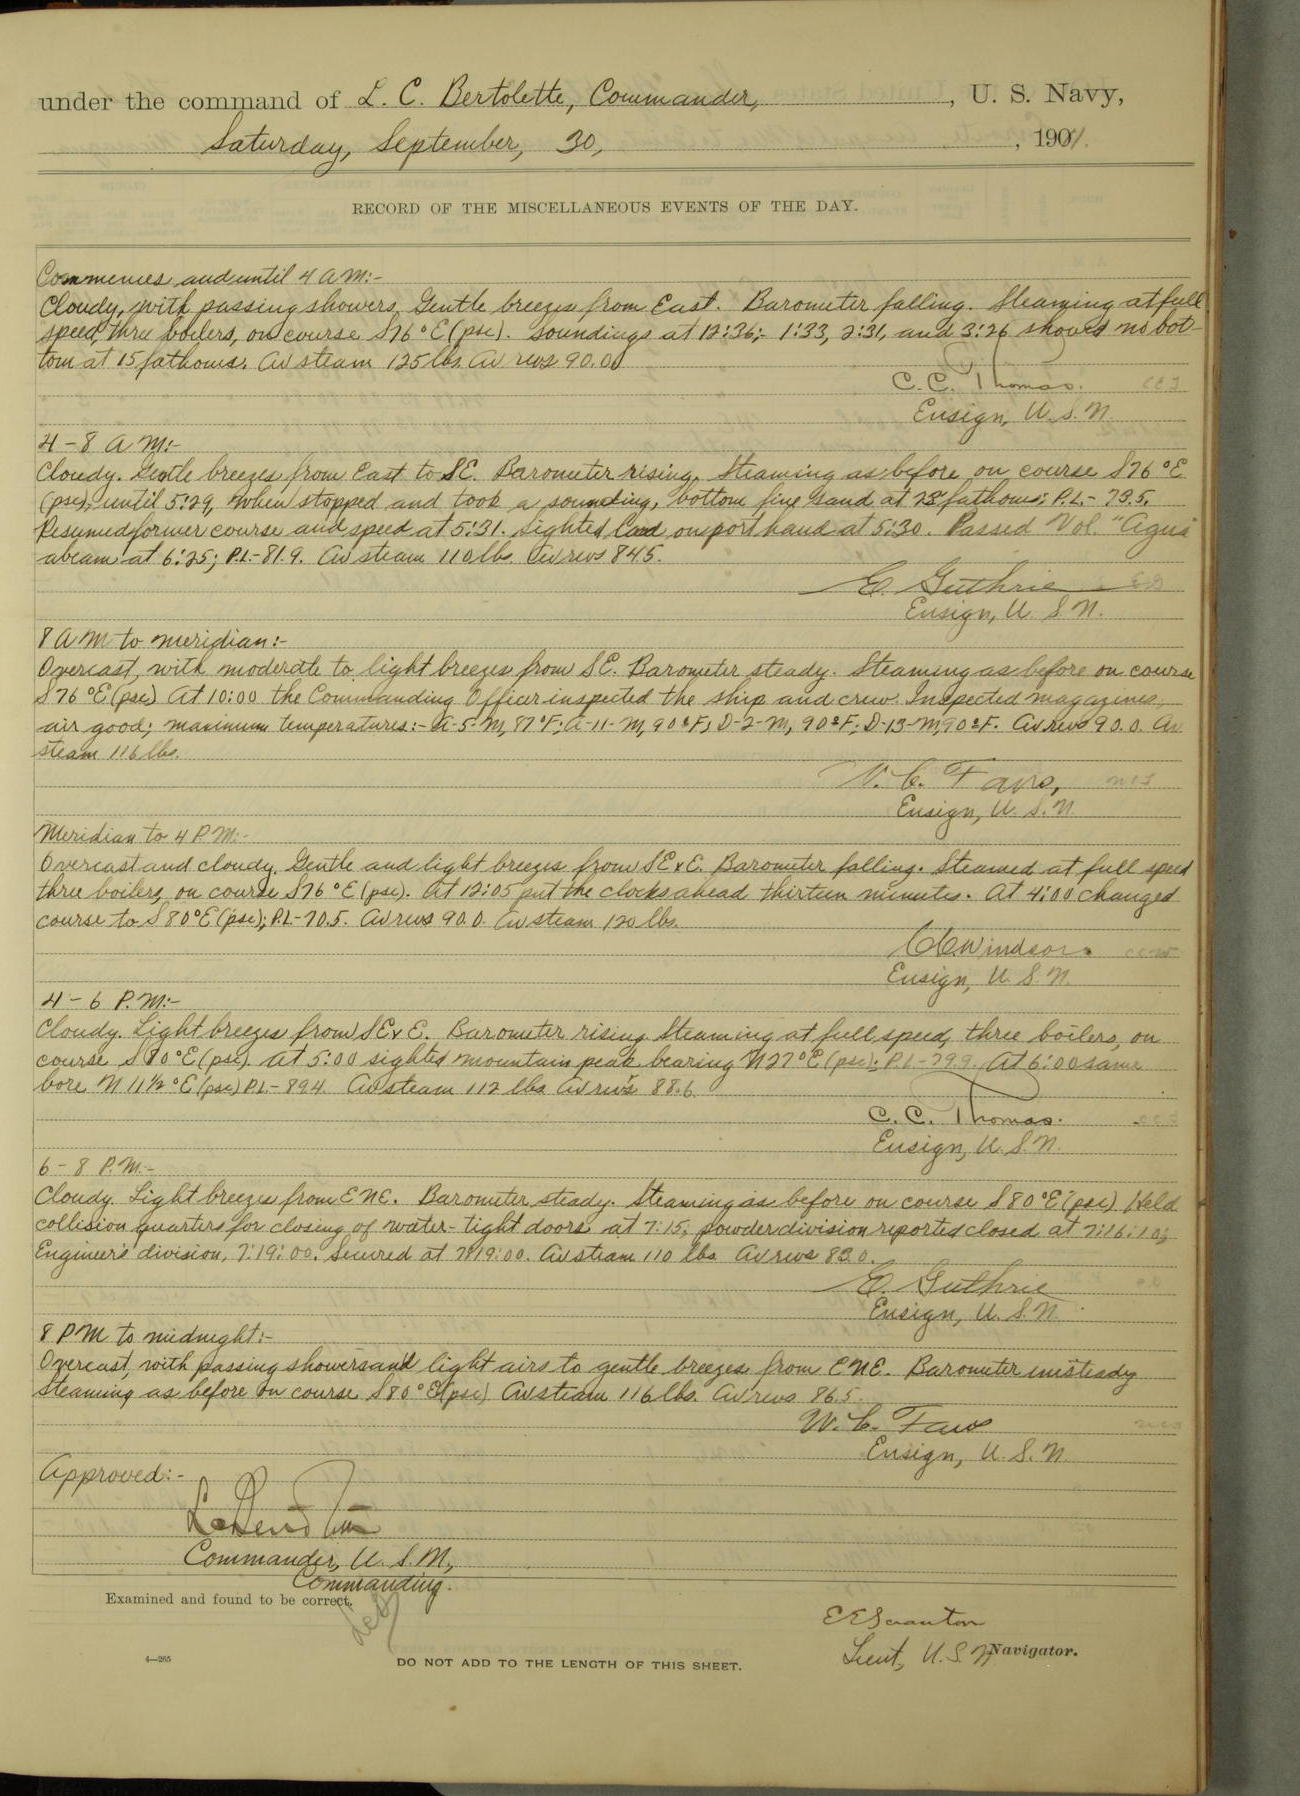 under the command of L. C. Bertolette, Commander, , U. S. Navy,
Saturday, September, 30, , 190
RECORD OF THE MISCELLANEOUS EVENTS OF THE DAY.
Commences and until 4 A M:-
Cloudy, with passing showers. Gentle breezes from East. Barometer falling. Steaming at full
speed, three boilers, on course S 76° E (psc). Soundings at 12:36; 1:33, 2:31, and 3:26 showed no bot-
tom at 15 fathoms. Av steam 125 lbs. Av revs 90.00
C. C. Thomas.
Ensign, U. S. N.
4 - 8 A M:-
Cloudy. Gentle breezes from East to SE. Barometer rising. Steaming as before, on course S 76° E
(psc), until 5:29, when stopped and took a sounding, bottom fine sand at 23 fathoms; P.L.- 73.5.
Resumed former course and speed at 5:31. Sighted land on port hand at 5:30. Passed Vol. "Agua"
abeam at 6:25; P.L.- 81.9. Av steam 110 lbs. Av revs 84.5.
E. Guthrie
Ensign, U. S. N.
8 A M to meridian:-
Overcast, with moderate to light breezes from SE. Barometer steady. Steaming as before on course
S 76° E (psc) At 10:00 the Commanding Officer inspected the ship and crew. Inspected magazines,
air good; maximum temperatures:- A-5-M, 87°F; A-11-M, 90°F; D-2-M, 90°F; D-13-M, 90°F. Av revs 90.0. Av
steam 116 lbs.
W. C. Faus,
Ensign, U. S. N.
Meridian to 4 P. M:-
Overcast and cloudy. Gentle and light breezes from SExE. Barometer falling. Steamed at full speed
three boilers, on course S 76° E (psc). At 12:05 put the clocks ahead thirteen minutes. At 4:00 changed
course to S 80° E (psc); P.L.- 70.5. Av revs 90.0. Av steam 120 lbs.
C C Windsor.
Ensign, U. S. N.
4 - 6 P. M:-
Cloudy. Light breezes from SExE. Barometer rising. Steaming at full speed, three boilers, on
course S 80° E (psc). At 5:00 sighted mountain peak bearing N 27° E (psc); P.L.- 79.9. At 6:00 same
bore N 11 1/2° E (psc) P.L.- 89.4. Av steam 112 lbs. Av revs 88.6.
C. C. Thomas.
Ensign, U. S. N.
6 - 8 P. M.-
Cloudy. Light breezes from ENE. Barometer steady. Steaming as before on course S 80° E (psc) Held
collision quarters for closing of water-tight doors at 7:15; powder division reported closed at 7:16:10;
Engineer's division, 7:19:00. Secured at 7:19:00. Av steam 110 lbs. Av revs 83.0.
E. Guthrie
Ensign, U. S. N.
8 P M to midnight:-
Overcast, with passing showers and light airs to gentle breezes from ENE. Barometer unsteady
Steaming as before on course S 80° E (psc) Av steam 116 lbs. Av revs 86.5.
W. C. Faus
Ensign, U. S. N.
Approved:-
Commander, U. S. N.,
Commanding.
Examined and found to be correct.
E E Scranton
Lieut, U. S. N. Navigator.
4—265
DO NOT ADD TO THE LENGTH OF THIS SHEET.